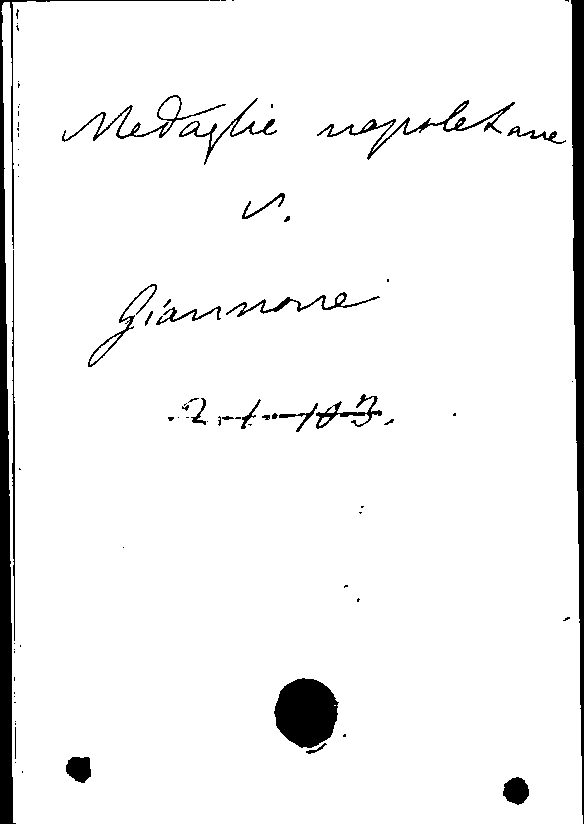 Medaglie napoletane
v.
Giannone
2-1-103.